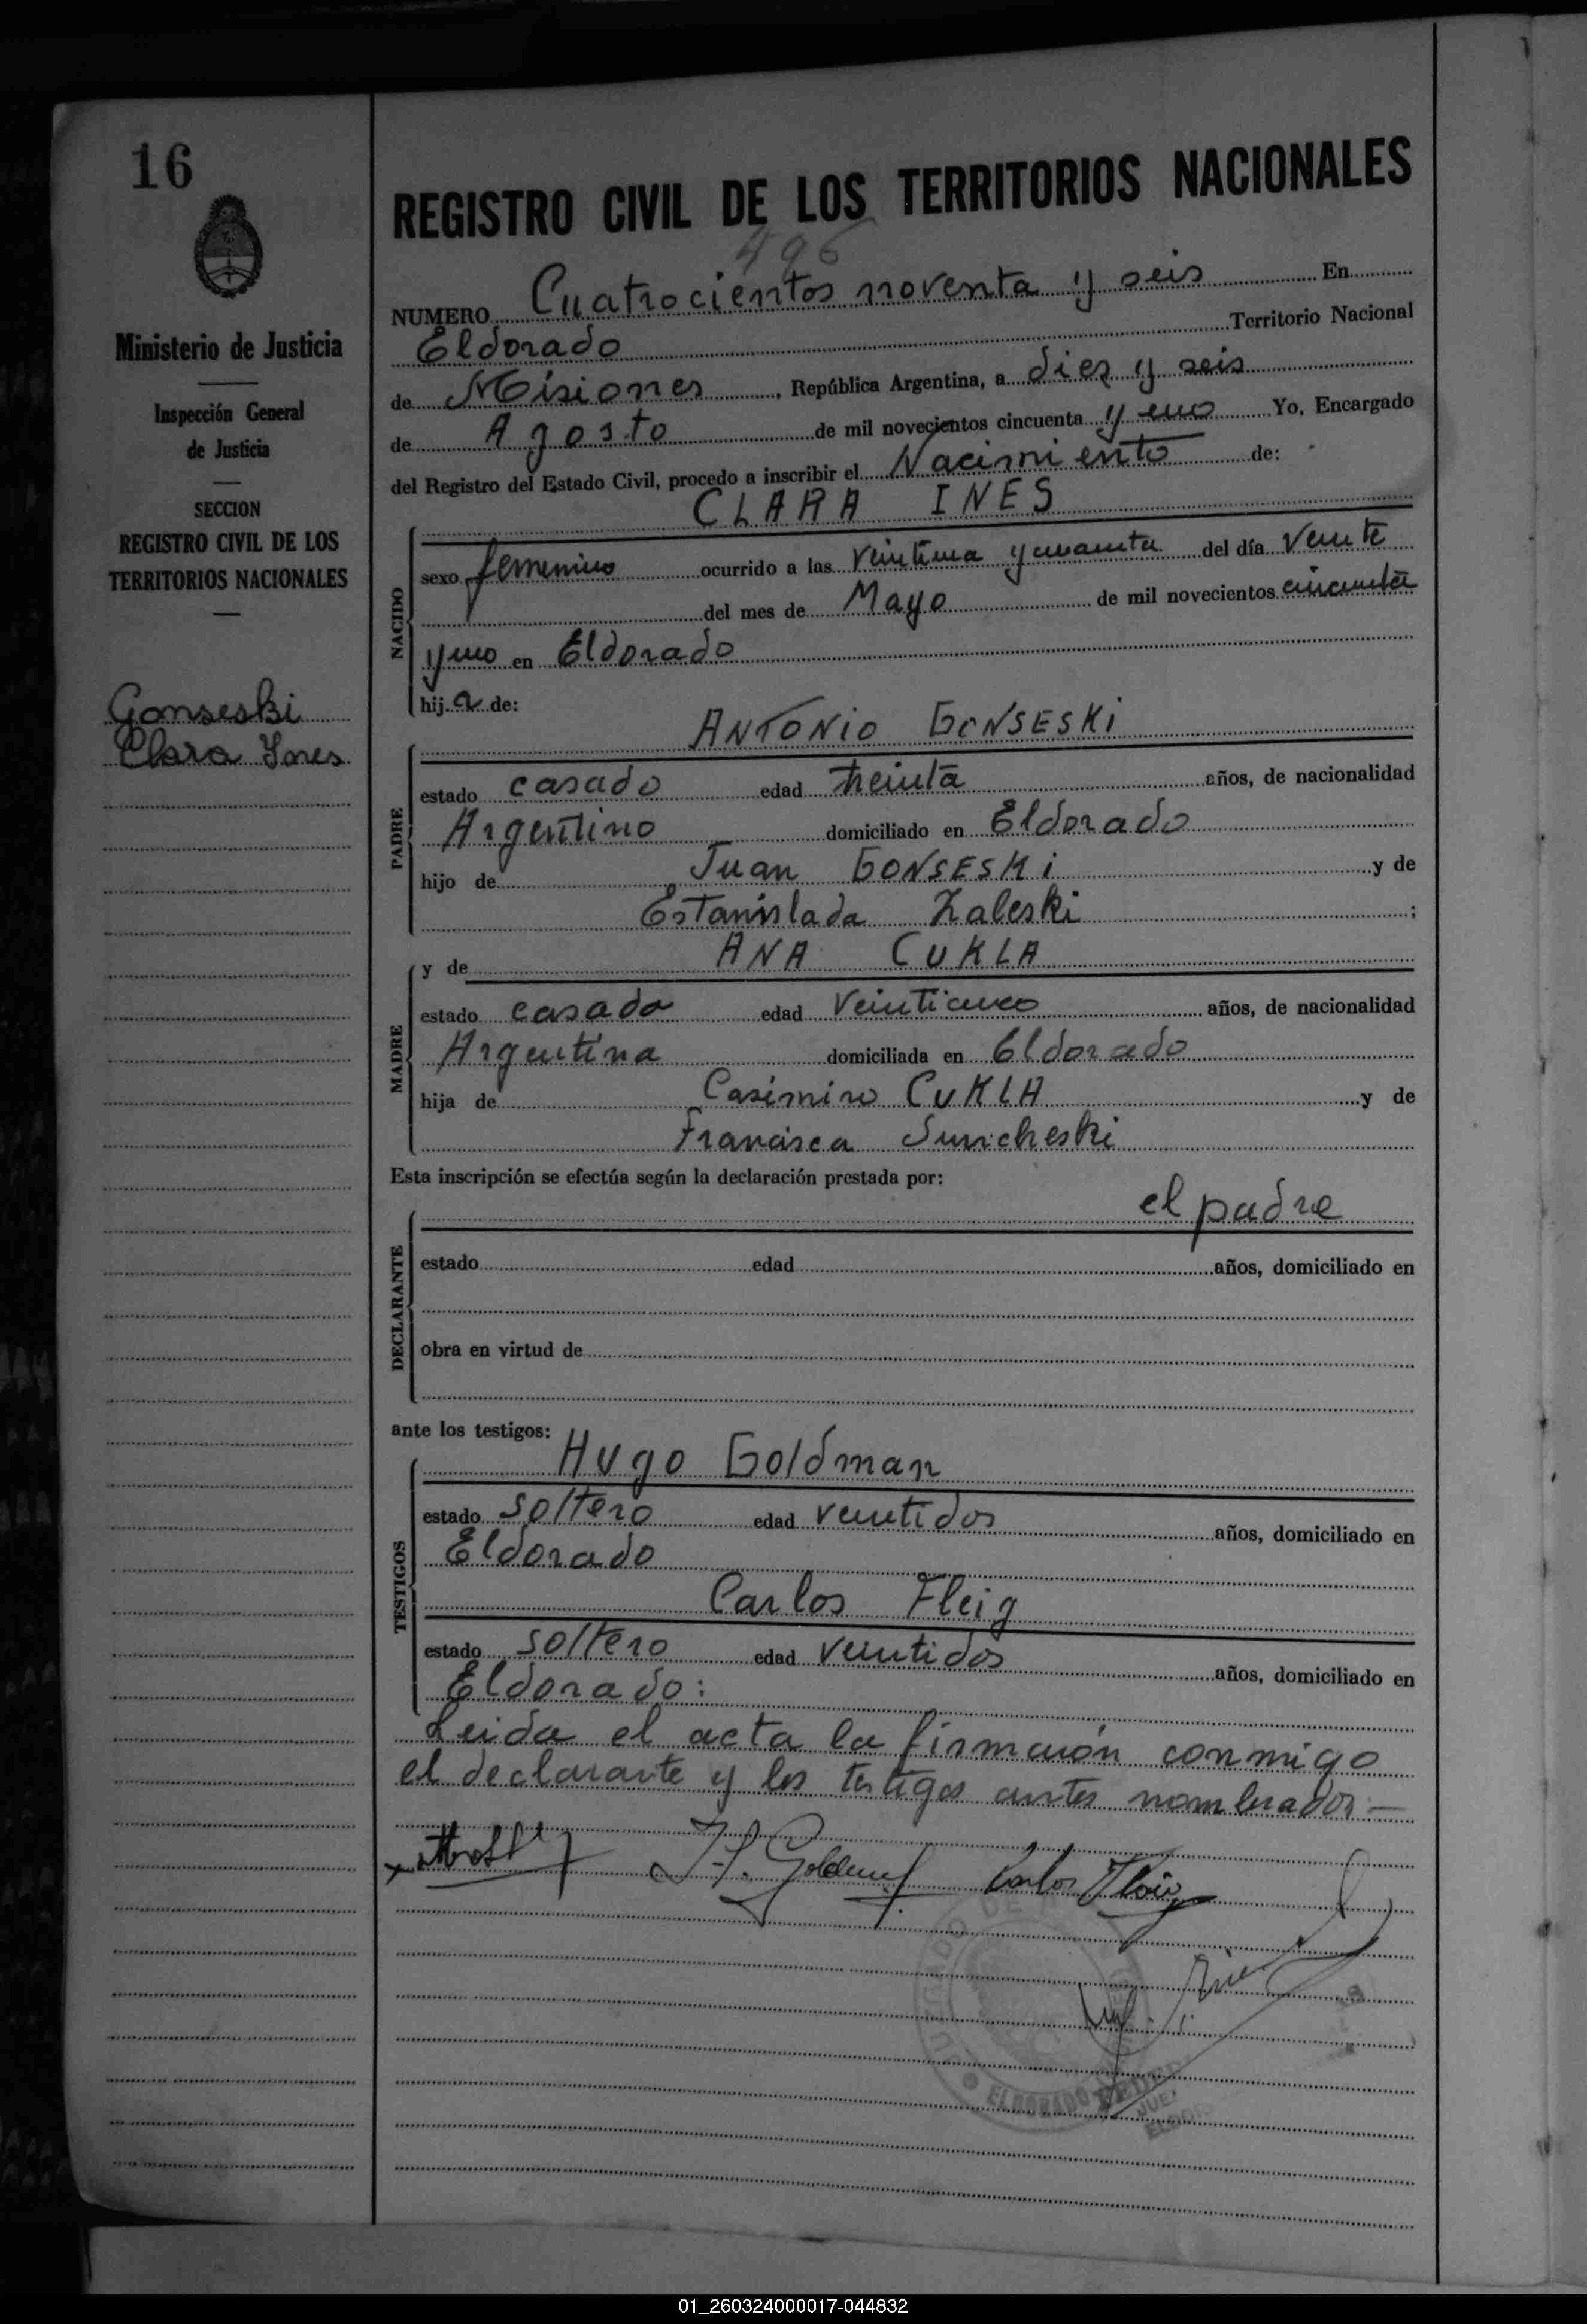 16
Ministerio de Justicia
Inspección General
de Justicia
SECCION
REGISTRO CIVIL DE LOS
TERRITORIOS NACIONALES
Gonseski
Clara Ines
REGISTRO CIVIL DE LOS TERRITORIOS NACIONALES
496
NUMERO Cuatrocientos noventa y seis En
Eldorado Territorio Nacional
de Misiones, República Argentina, a diez y seis
de Agosto de mil novecientos cincuenta y uno Yo, Encargado
del Registro del Estado Civil, procedo a inscribir el Nacimiento de:
CLARA INES
NACIDO
sexo femenino ocurrido a las veintiuna y cuarenta del día veinte
del mes de Mayo de mil novecientos cincuenta
y uno en Eldorado
hija de:
ANTONIO GONSESKI
PADRE
estado casado edad treinta años, de nacionalidad
Argentino domiciliado en Eldorado
hijo de Juan GONSESKI y de
Estanislada Zaleski ;
y de ANA CUKLA
MADRE
estado casada edad Veinticinco años, de nacionalidad
Argentina domiciliada en Eldorado
hija de Casimiro CUKLA y de
Francisca Suricheski
Esta inscripción se efectúa según la declaración prestada por:
el padre
DECLARANTE
estado edad años, domiciliado en
obra en virtud de
ante los testigos:
Hugo Goldman
TESTIGOS
estado soltero edad veintidos años, domiciliado en
Eldorado
Carlos Fleig
estado soltero edad veintidos años, domiciliado en
Eldorado:
Leida el acta la firmaron conmigo
el declarante y los testigos antes nombrados.—
Carlos Fleig
ELDORADO
JUEZ
01_260324000017-044832